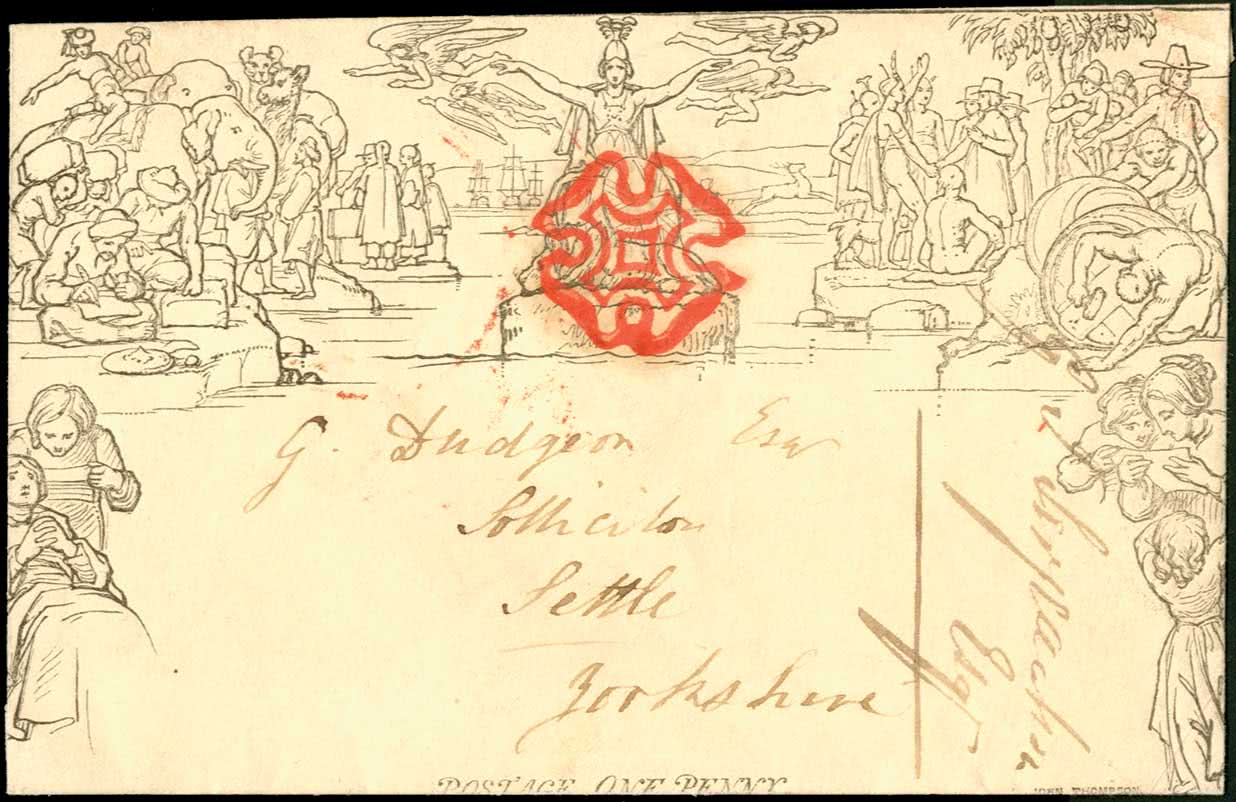 G. Dudgeon Esqr
Sollicitor
Settle
Yorkshire
Esqr
POSTAGE ONE PENNY
JOHN THOMPSON